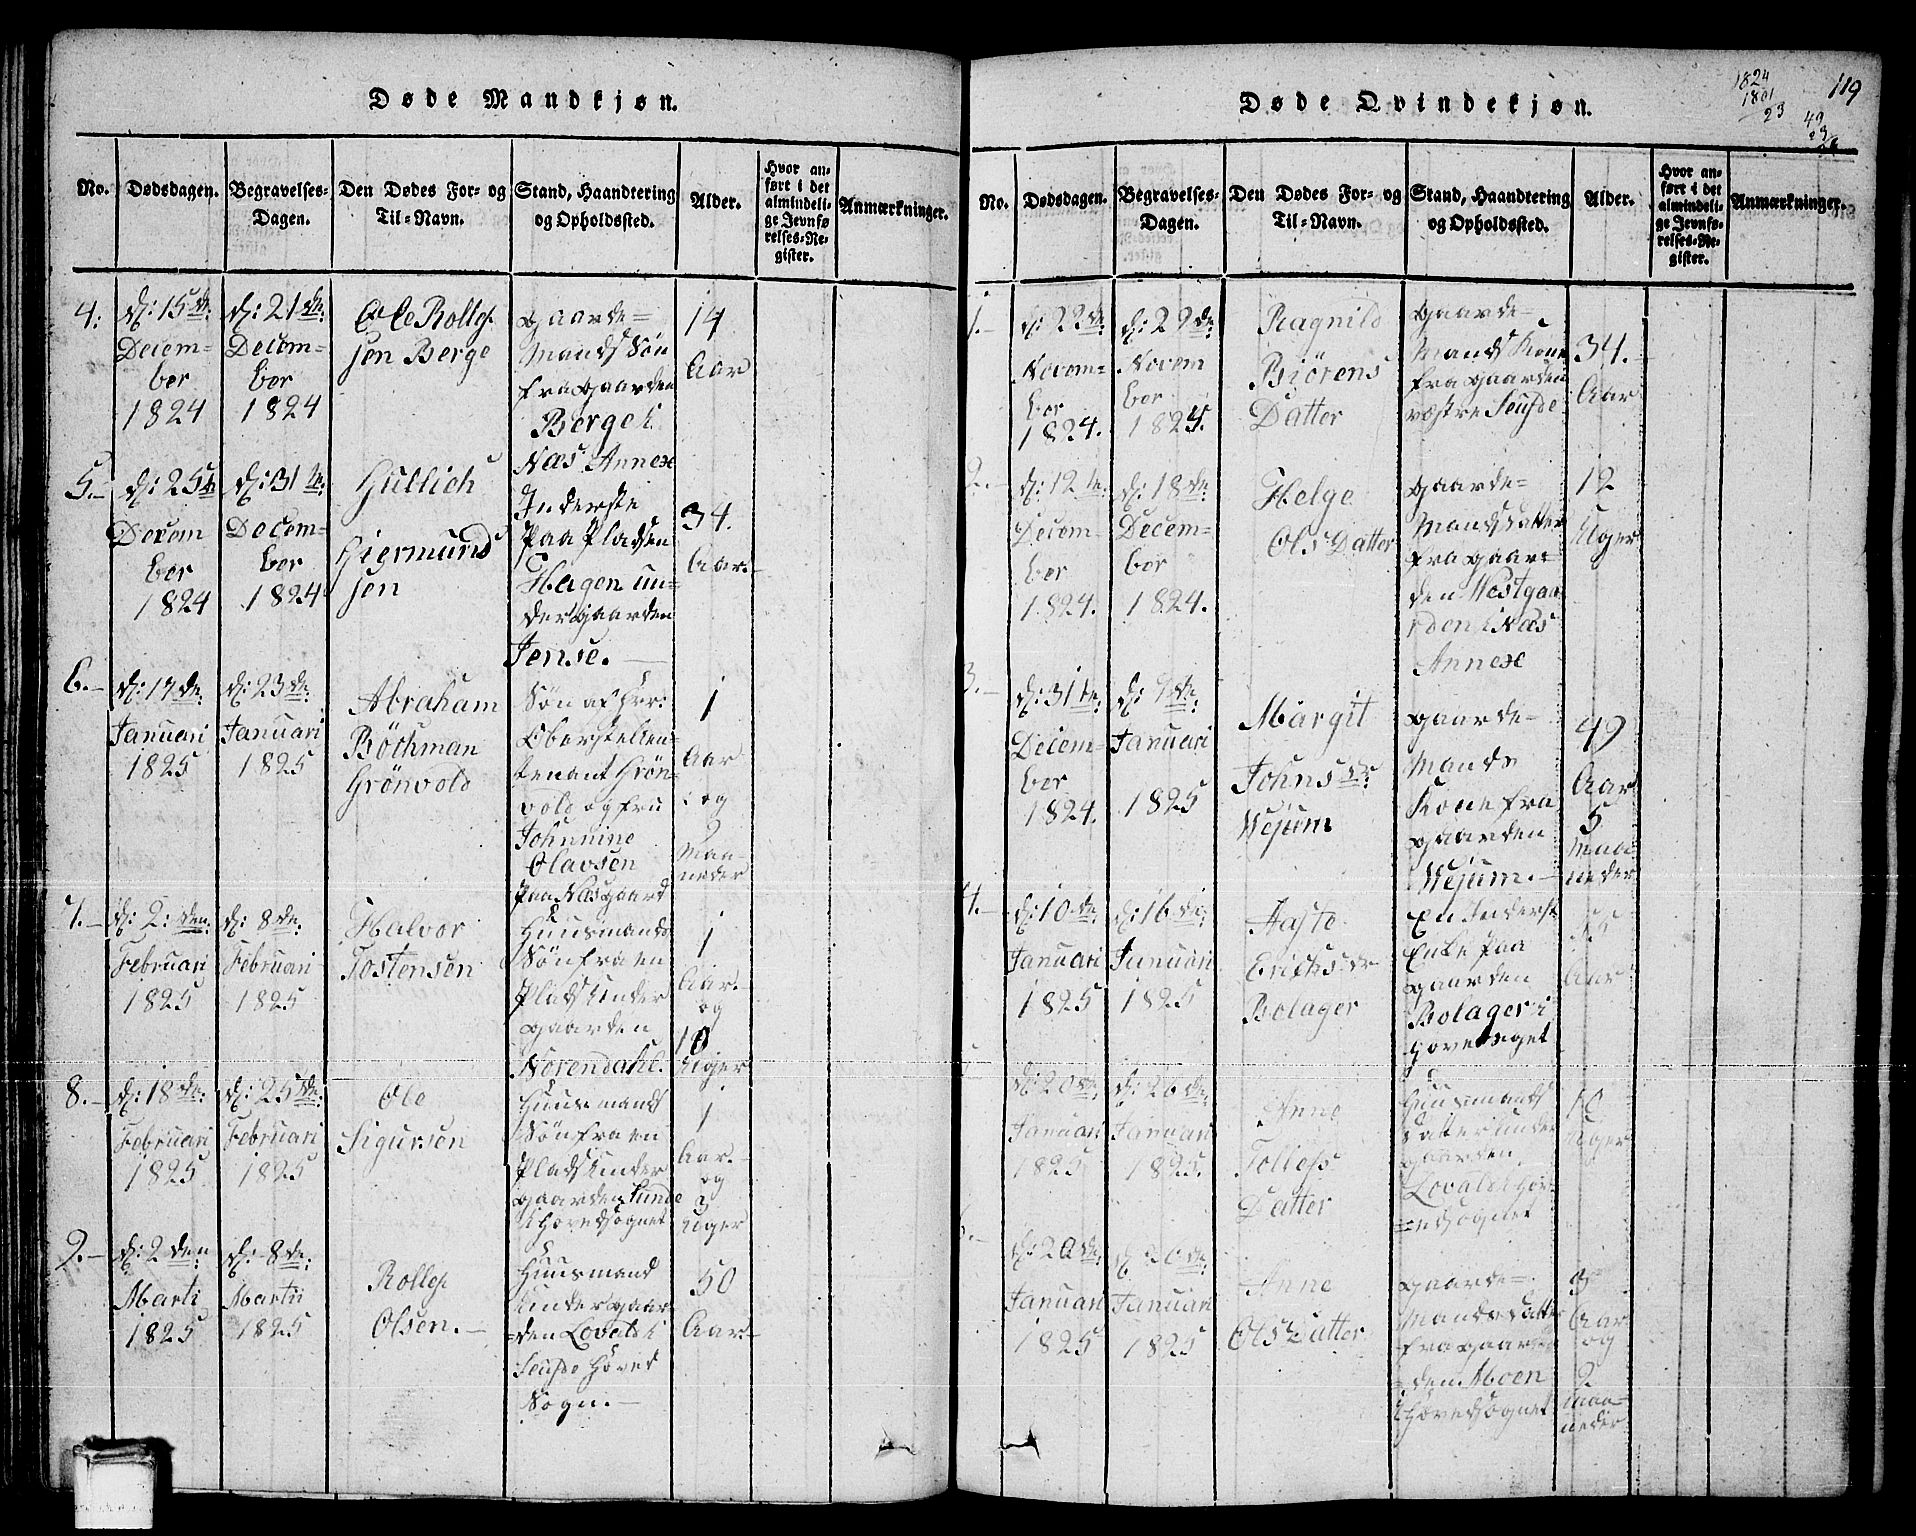 Døde Mandkjøn.
No.
Dødsdagen.
Begravelses-
Dagen.
Den Dødes For- og
Til-Navn.
Stand, Haandtering
og Opholdssted.
Alder.
Hvor an-
ført i det
almindeli-
ge Jevnfø-
relses-Re-
gister.
Anmærkninger.
4:
d: 15de
Decem-
ber
1824
d: 21de:
Decem-
ber
1824
Ole Rollef
sen Berge
gaarde-
Mands Søn
fra gaarden
Berge i
Næs Annex
14
Aar
5.-
d: 25de
Decem
ber
1824
d: 31te.
Decem-
ber
1824
Gullich
Giermund
sen
Inderste
paa Pladsen
Hagen un-
der gaarden
Jense.
34.
Aar.
6.-
d: 17de.
Januari
1825
d: 23de.
Januari
1825
Abraham
Böchman
Grönvold
Søn af Her:
Oberstelieu-
tenant Grön-
vold og fru
Johnnine
Olavsen
paa Næsgaard
1
Aar
og
9
Maa-
neder
7.-
d: 2: den:
Februari
1825
d: 8de.
Februari
1825
Halvor
Tostensen
Huusmands
Søn fra en
Plads under
gaarden
Norendahl.
1
Aar.-
og
10
Uger
8.-
d: 18de.
Februari
1825
d: 25de.
Februari
1825
Ole
Sigursen
Huusmands
Søn fra en
Plads under
gaarden Lunde
i Hovedsognet
1
Aar.-
og
3
Uger
9.-
d: 2den
Marti
1825
d: 8de:
Martii
1825
Rollef
Olsen.-
Huusmand
under gaar
den Lovald i
Seufde Hoved
Sogn.-
50
Aar.-
Døde Qvindekjøn.
1824
1801
23
49
23
26
119
No.
Dødsdagen.
Begravelses-
Dagen.
Den Dødes For- og
Til-Navn.
Stand, Haandtering
og Opholdssted.
Alder.
Hvor an-
ført i det
almindeli-
ge Jevnfø-
relses-Re-
gister.
Anmærkninger.
1.-
d: 22de.
Novem-
ber
1824.
d: 29de.
Novem
ber
1824.
Ragnild
Biörens
Datter
gaarde-
Mands Kone
fra gaarden
vestre Seufde
34.
Aar
2.-
d: 12te.
Decem-
ber
1824.
d: 18de
Decem-
ber
1824.
Helge
Ols Datter
gaarde-
Mands Datter
fra gaar-
den Westgaa
rden i Næs
Annex
12
Uger
3.-
d: 31te.
Decem-
ber
1824.
d: 7de.
Januari
1825
Margit
Johns Dr.
Wejum
gaarde-
Mands
Kone fra
gaarden
Wejum.-
49
Aar
5
Maa-
neder
4.-
d: 10de.
Januari
1825
d: 16de:
Januari
1825
Aaste
Erichs Dr
Bolager
En Inderst
Enke paa
gaarden
Bolager i
Hovedsognet
Aar
d: 20de.
Januari
1825
d: 26de.
Januari
1825.
Anne
Tollefs
Datter
Huusmands
Datter under
gaarden
Lovald i Hov-
edsognet
10
Uger
6.-
d: 20de.
Januari
1825
d: 26de.
Januari
1825
Anne
Ols Datter
gaarde-
Mands Datter
fra gaar
den Moen
i Hovedsognet
3
Aar
og
9
Maa-
neder